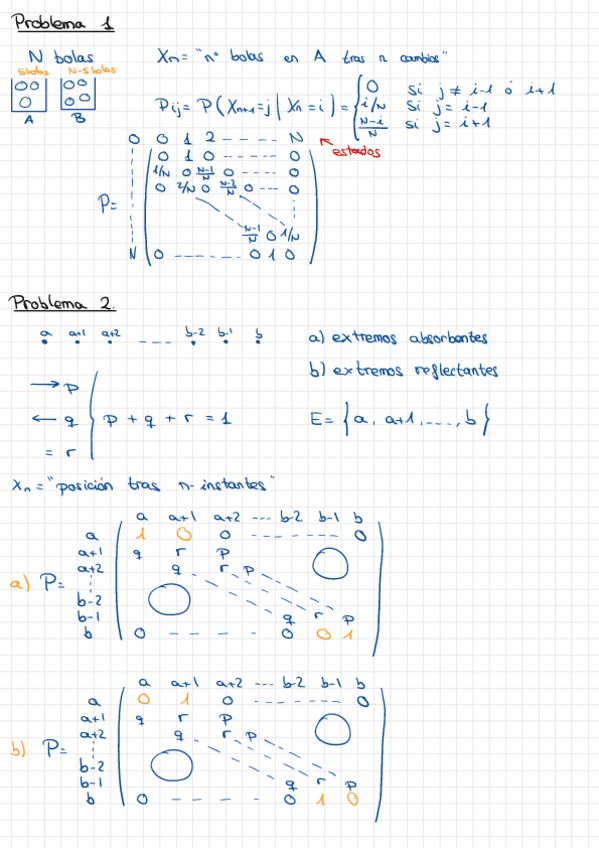 Problema 1
N bolas
5 bolas N-5 bolas
A B
Xn = "nº bolas en A tras n cambios"
Pij = P(Xn+1=j | Xn=i) = { 0 si j ≠ i-1 ó i+1
i/N si j = i-1
N-i/N si j = i+1
0 0 1 2 ---- N
estados
0 1 0 ---- 0
1/N 0 N-1/N 0 ---- 0
0 2/N 0 N-2/N 0 --- 0
P=
N-1/N 0 1/N
N 0 ------- 0 1 0
Problema 2.
a a+1 a+2 --- b-2 b-1 b
a) extremos absorbentes
b) extremos reflectantes
→ p
← q
= r
p + q + r = 1
E = {a, a+1, ..., b}
Xn = "posición tras n-instantes"
a a+1 a+2 --- b-2 b-1 b
a 1 0 0 ------- 0
a+1 q r p
a+2 q r p
a) P=
b-2
b-1 q r p
b 0 ---- 0 0 1
a a+1 a+2 --- b-2 b-1 b
a 0 1 0 ------- 0
a+1 q r p
a+2 q r p
b) P=
b-2
b-1 q r p
b 0 ---- 0 1 0